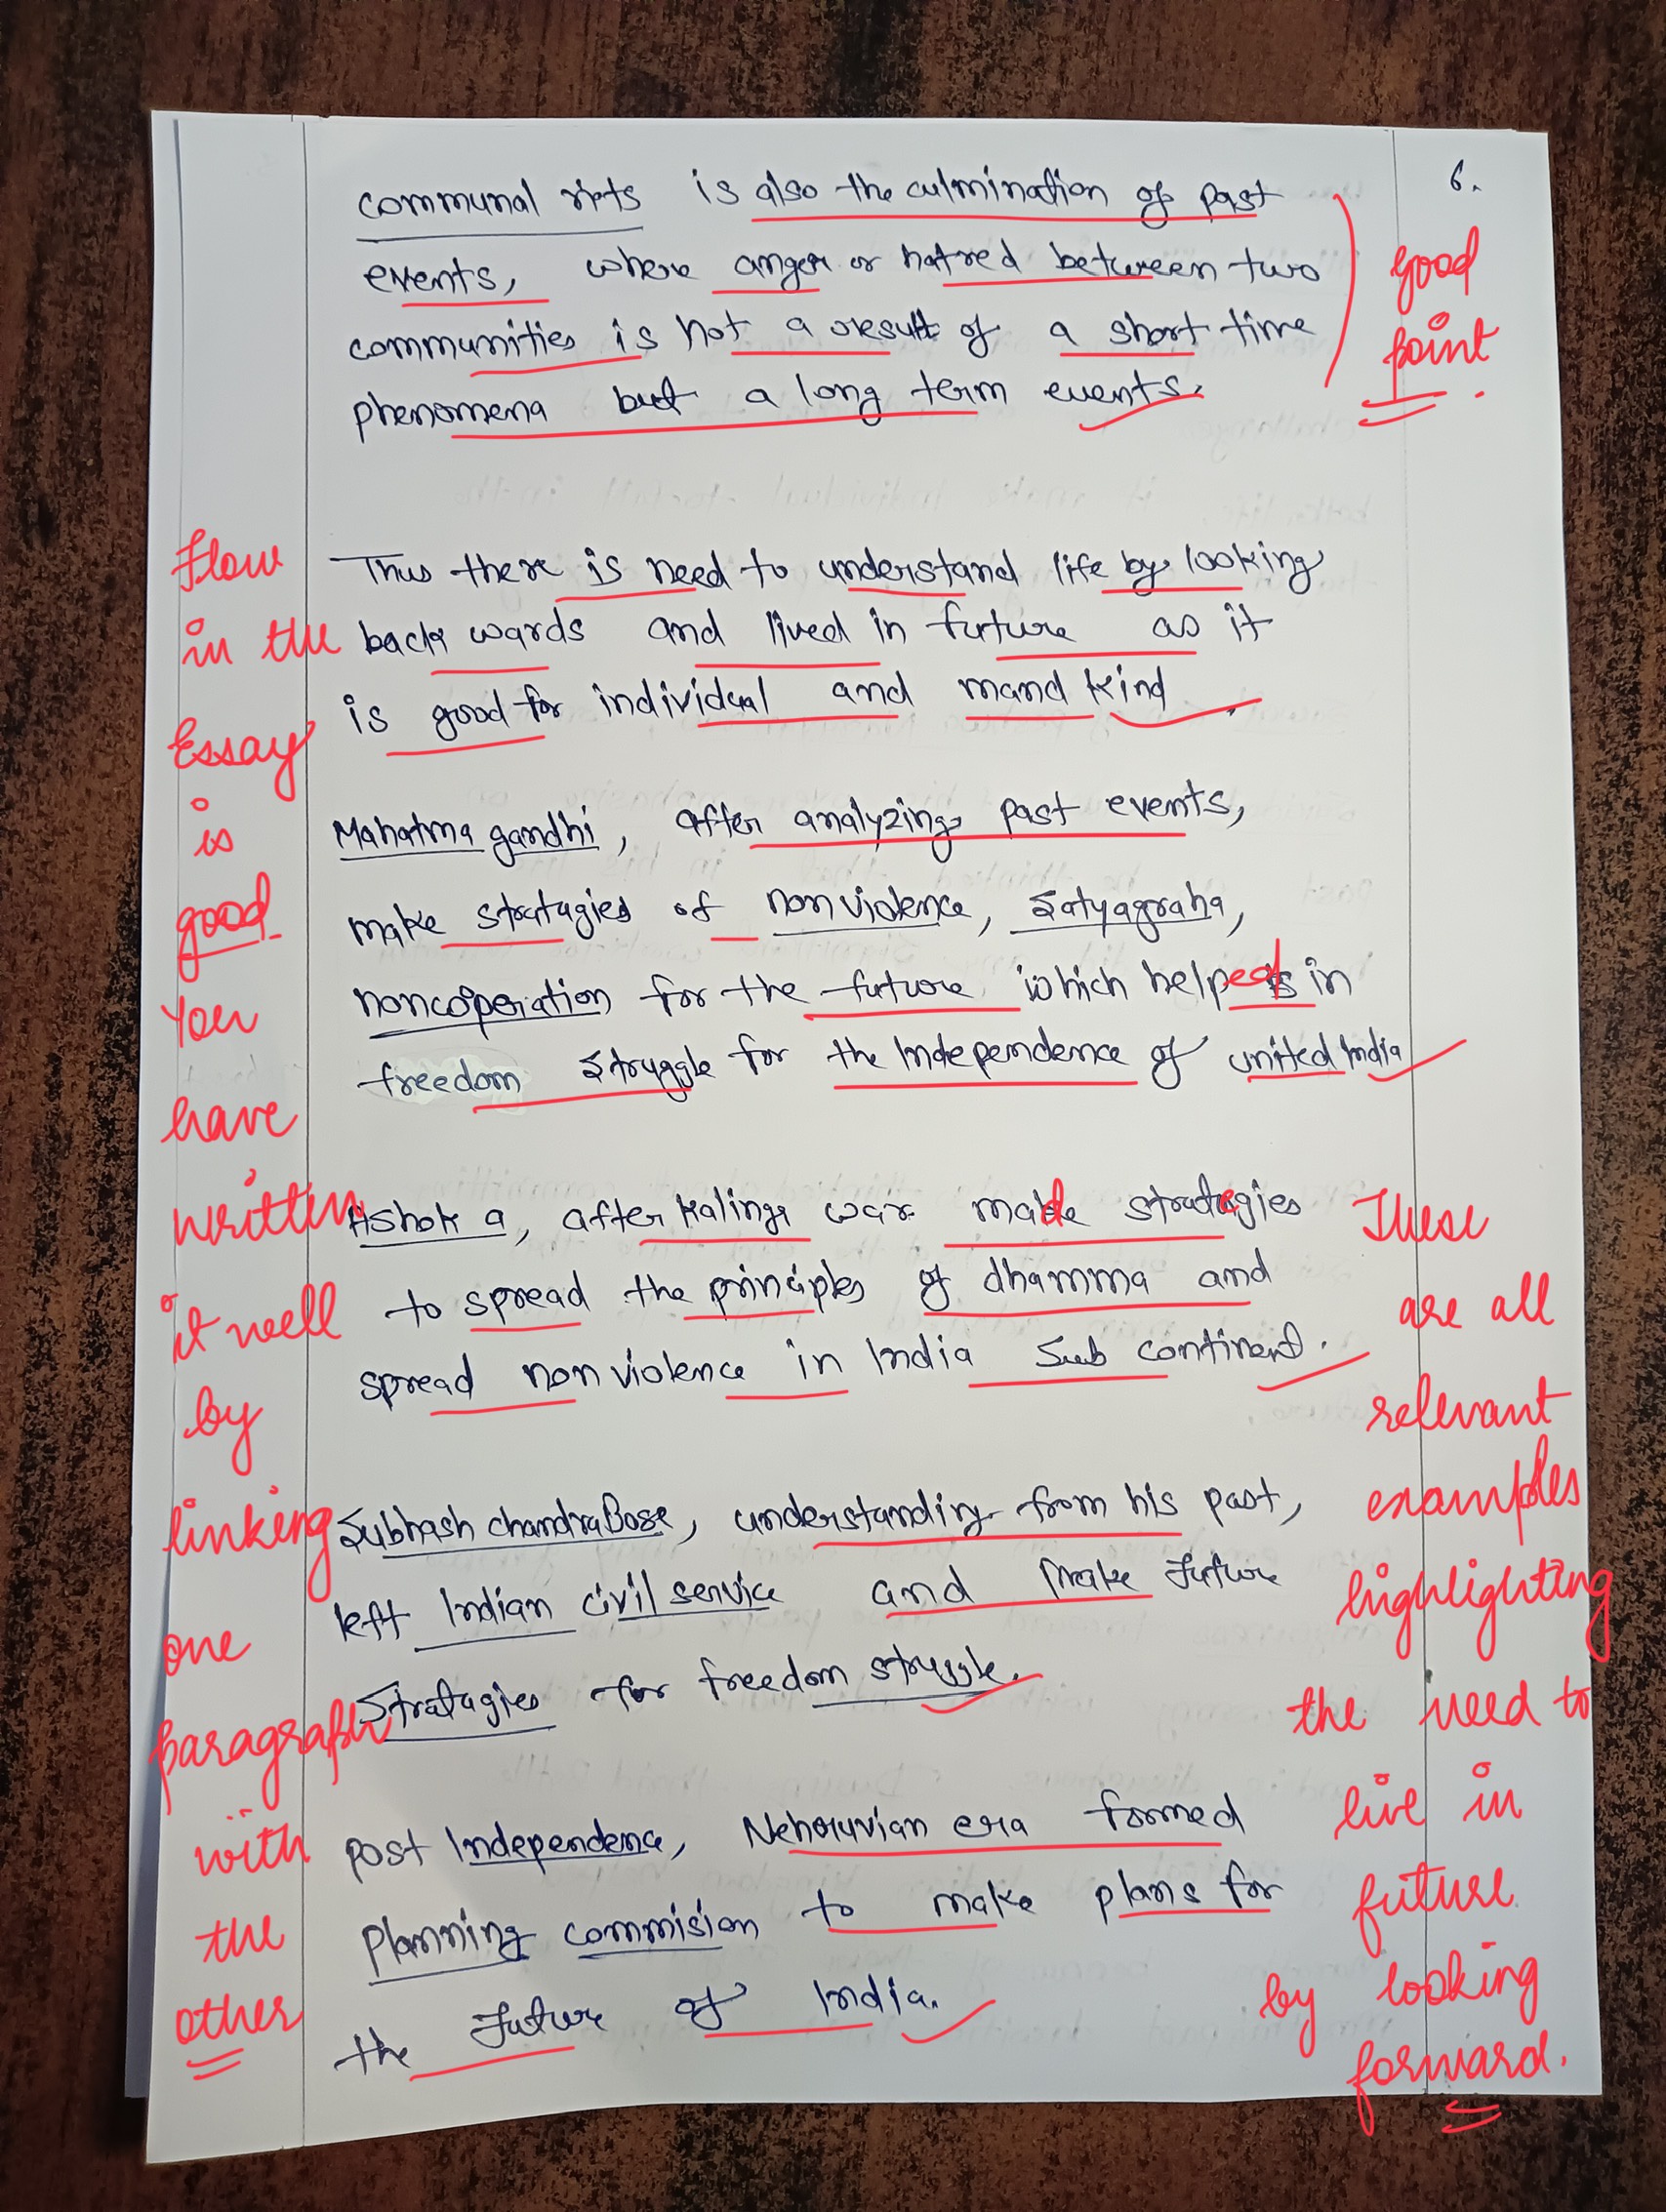 6.
communal riots is also the culmination of past
events, where anger or hatred between two
communities is not a result of a short time
phenomena but a long term events.
good
point.
Thus there is need to understand life by looking
back wards and lived in future as it
is good for individual and mand kind.
Mahatma gandhi, after analyzing past events,
make stratagies of non violence, Satyagraha,
noncoperation for the future which helped in
freedom struggle for the Independence of united India
Ashok a, after Kalinga war made strategies
to spread the principles of dhamma and
spread non violence in India Sub continent.
Subhash chandra Bose, understanding from his past,
left Indian civil service and make future
Stratagies for freedom struggle.
post Independence, Nehruvian era formed
planning commision to make plans for
the future of India.
flow
in the
Essay
is
good
You
have
written
it well
by
linking
one
paragraph
with
the
other
These
are all
relevant
examples
highlighting
the need to
live in
future
by looking
forward.